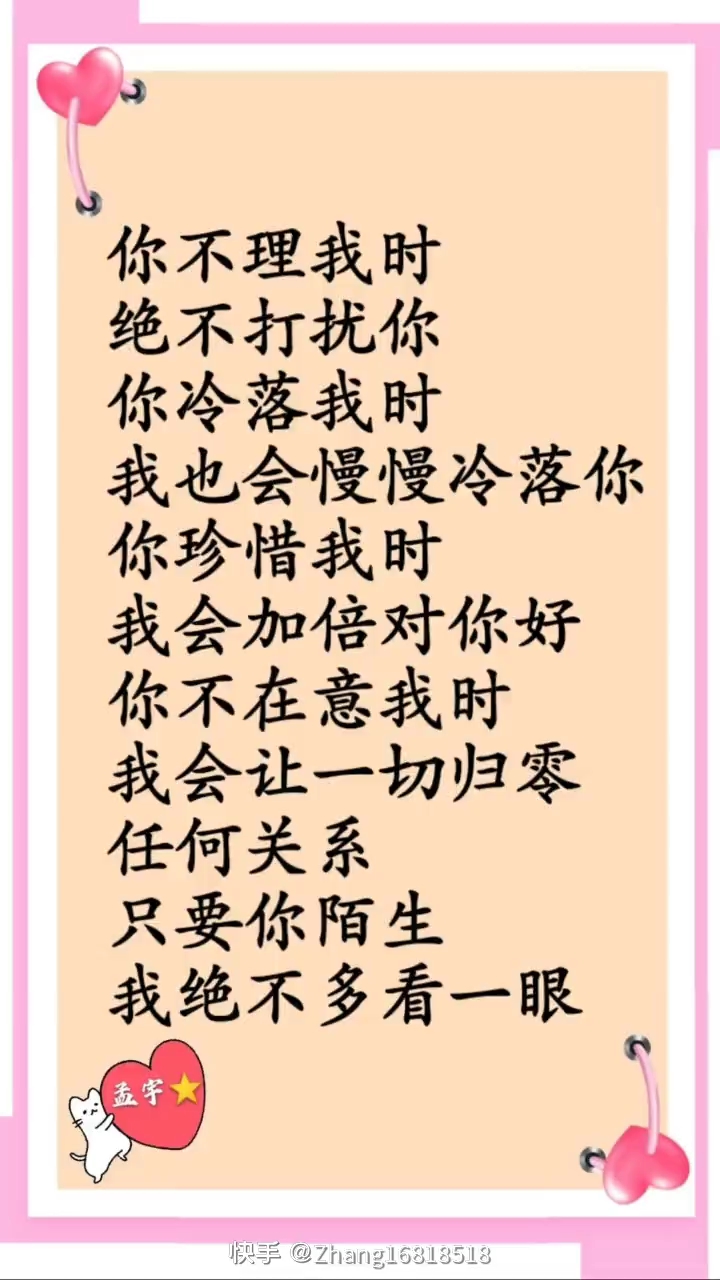 你不理我时
绝不打扰你
你冷落我时
我也会慢慢冷落你
你珍惜我时
我会加倍对你好
你不在意我时
我会让一切归零
任何关系
只要你陌生
我绝不多看一眼
孟宇
快手 @Zhang16818518